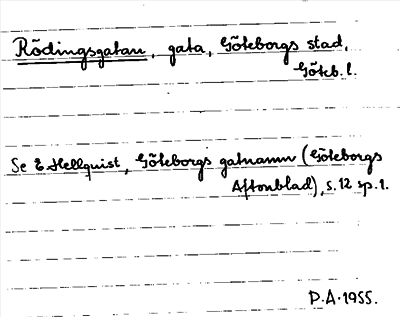 Rödingsgatan, gata, Göteborgs stad,
Göteb. l.
Se E. Hellquist, Göteborgs gatnamn (Göteborgs
Aftonblad), s. 12 sp. 1.
P.A. 1955.